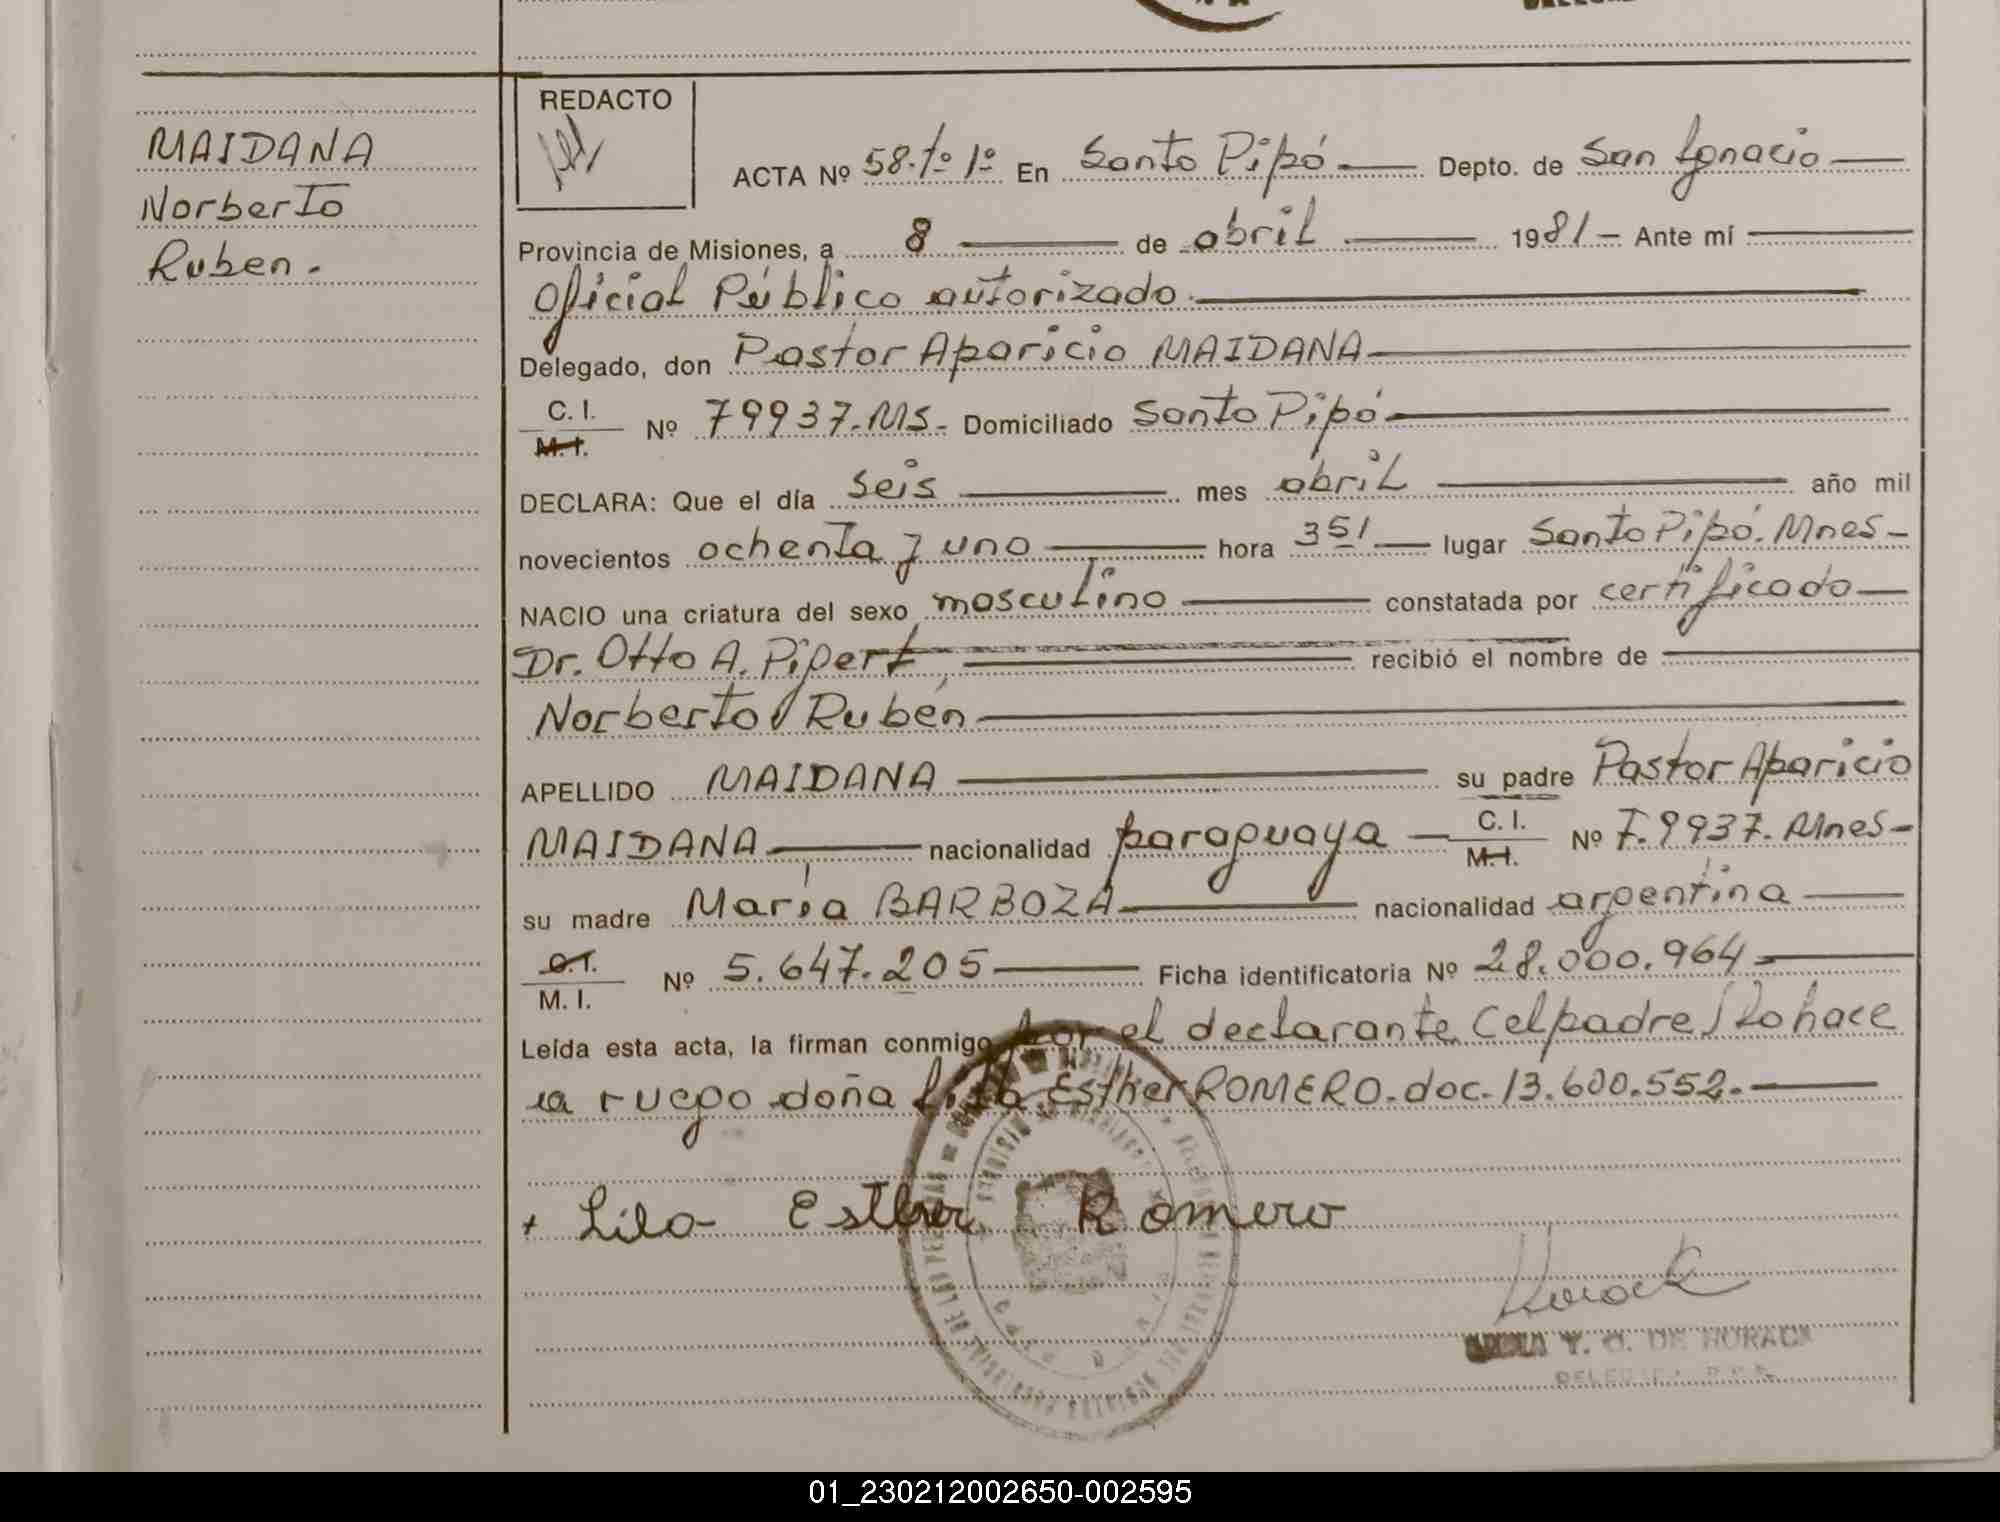 MAIDANA
Norberto
Ruben.
REDACTO
ACTA Nº 58.Tº 1º En Santo Pipó Depto. de San Ignacio
Provincia de Misiones, a 8 de abril 1981 Ante mí
Oficial Público autorizado.
Delegado, don Pastor Aparicio MAIDANA
C. I.
M. I. Nº 79937.MS. Domiciliado Santo Pipó
DECLARA: Que el día seis mes abril año mil
novecientos ochenta y uno hora 351 lugar Santo Pipó. Mnes-
NACIO una criatura del sexo masculino constatada por certificado
Dr. Otto A. Pipert recibió el nombre de
Norberto Rubén
APELLIDO MAIDANA su padre Pastor Aparicio
MAIDANA nacionalidad paraguaya C. I.
M. I. Nº 7.9937. Mnes-
su madre María BARBOZA nacionalidad argentina
C. I.
M. I. Nº 5.647.205 Ficha identificatoria Nº 28.000.964
Leída esta acta, la firman conmigo por el declarante Celpadre/lo hace
a ruego doña Lila Esther ROMERO. doc. 13.600.552.
+ Lila Esther Romero
Y. O. DE HORACK
01_230212002650-002595